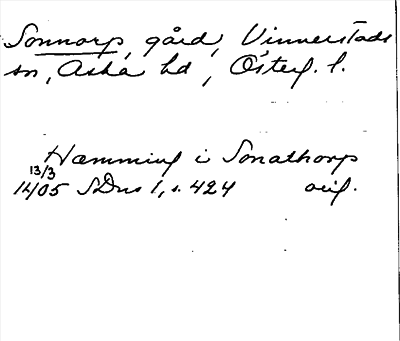 Sonnorp, gård, Vinnerstads
sn, Aska hd, Österg. l.
Hæmming i Sonathorp
13/3
1405 SDns 1, s. 424 orig.